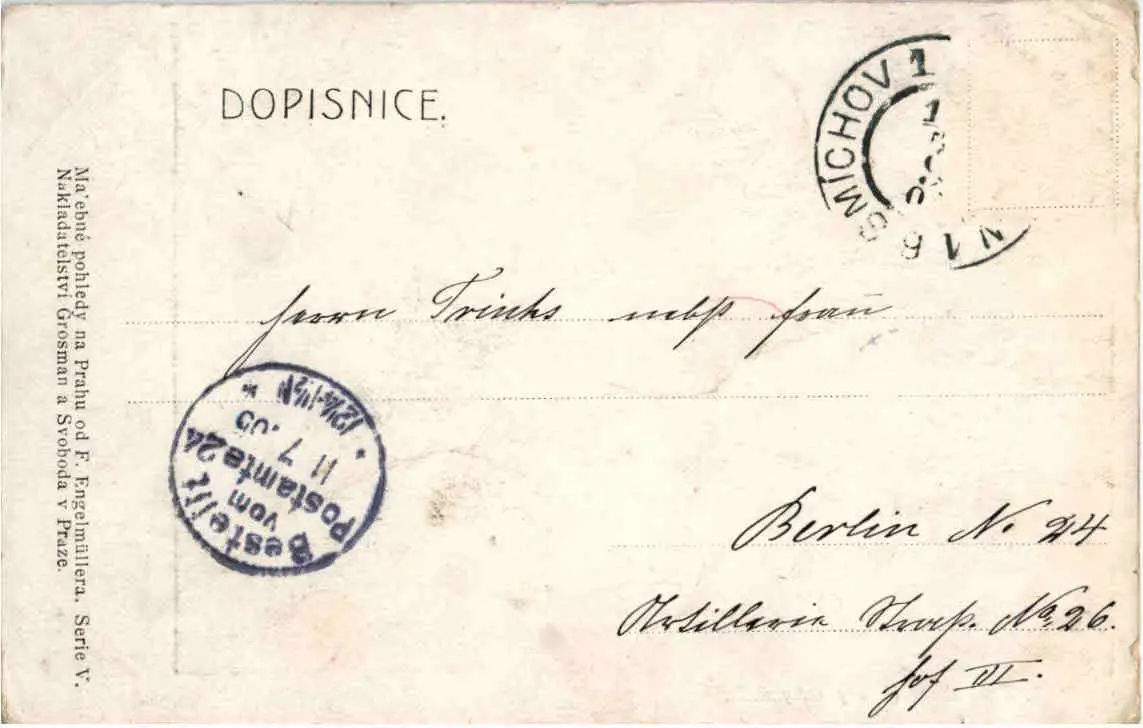 DOPISNICE.
SMÍCHOV 1
Herrn Trinks nebst Frau
Bestellt
vom
Postamte 24
11 7 .05
12¼-1½ N
Berlin N. 24
Artillerie Straß. No. 26.
Hof III.
Nakladatelství Grosman a Svoboda v Praze.
Ma'ebné pohledy na Prahu od F. Engelmüllera. Serie V.